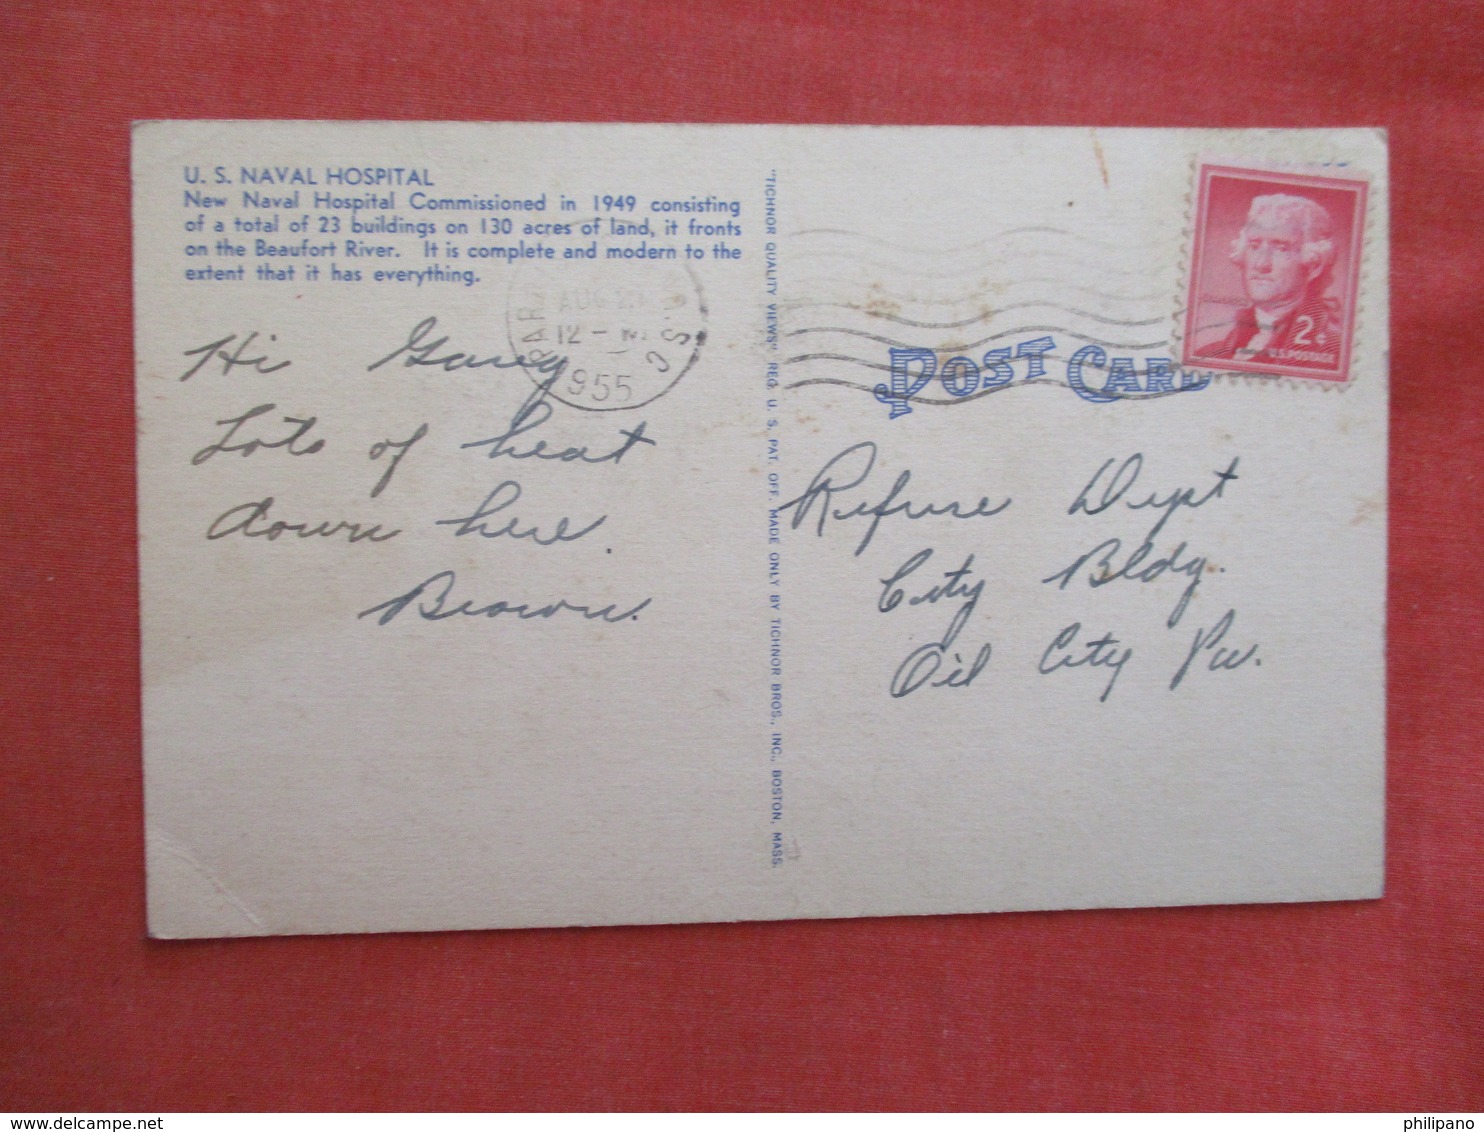 U. S. NAVAL HOSPITAL
New Naval Hospital Commissioned in 1949 consisting
of a total of 23 buildings on 130 acres of land, it fronts
on the Beaufort River. It is complete and modern to the
extent that it has everything.
Hi Garey
Lots of heat
down here.
Brown.
AUG
12 - M
1955
S. C.
"TICHNOR QUALITY VIEWS" REG. U. S. PAT. OFF. MADE ONLY BY TICHNOR BROS., INC., BOSTON, MASS.
2¢
U.S. POSTAGE
POST CARD
Refuse Dept
City Bldg.
Oil City Pa.
delcampe.net
philipano